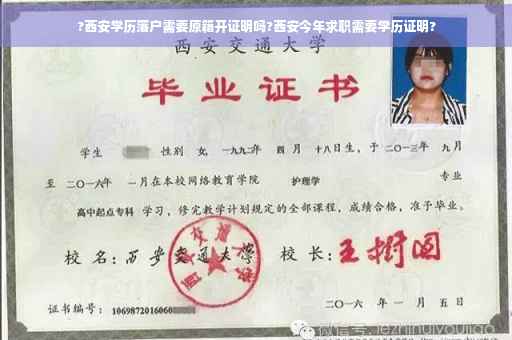 ?西安学历落户需要原籍开证明吗?西安今年求职需要学历证明?
西安交通大学
毕业证书
学生 性别 女, 一九九二年 四月 十八日生, 于 二〇一三年 九月
至 二〇一六年 一月在本校网络教育学院 护理学 专业
高中起点专科 学习, 修完教学计划规定的全部课程, 成绩合格, 准予毕业。
校名: 西安交通大学 校长: 王树国
西安交通大学
证书编号: 1069872016060 二〇一六年 一月 五日
微信号: jiezhinuiyoujiao